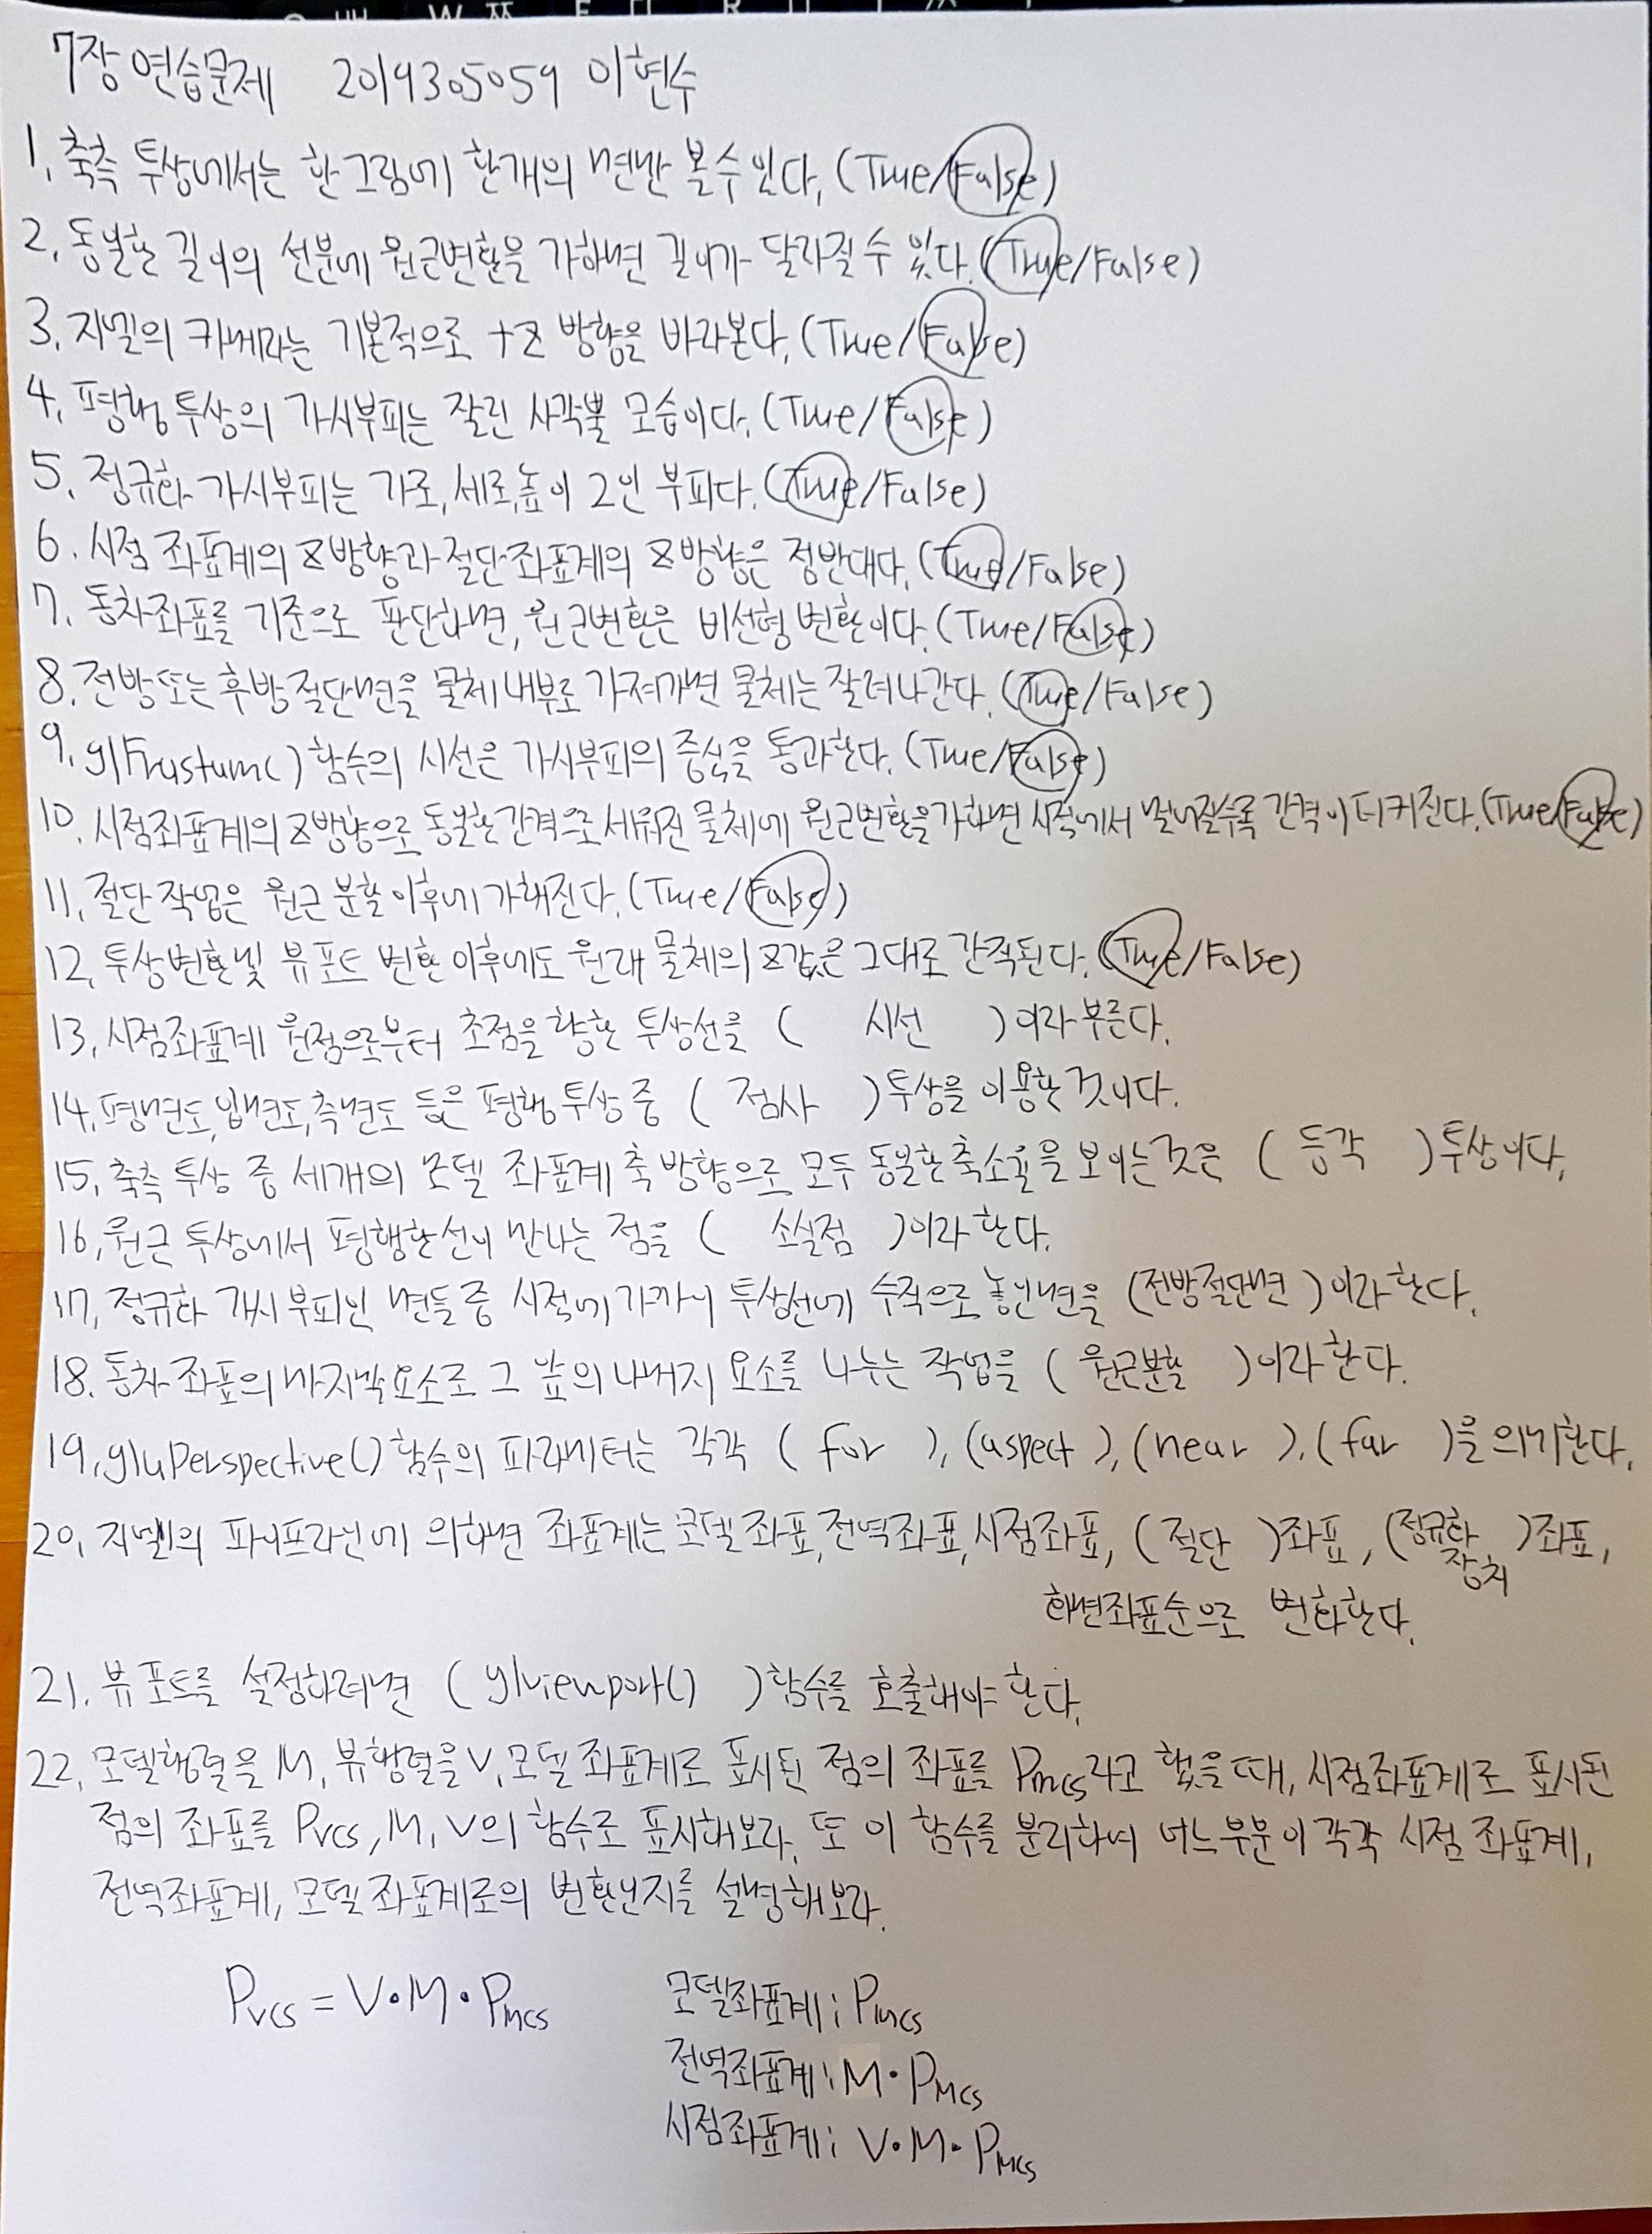 7장 연습문제 2019305059 이현수
1. 축측 투상에서는 한 그림에 한개의 면만 볼 수 있다. (True/False)
2. 동일한 길이의 선분에 원근변환을 가하면 길이가 달라질 수 있다. (True/False)
3. 지엘의 카메라는 기본적으로 +z 방향을 바라본다. (True/False)
4. 평행 투상의 가시부피는 잘린 사각뿔 모습이다. (True/False)
5. 정규화 가시부피는 가로, 세로, 높이 2인 부피다. (True/False)
6. 시점 좌표계의 z방향과 절단좌표계의 z방향은 정반대다. (True/False)
7. 동차좌표를 기준으로 판단하면, 원근변환은 비선형 변환이다. (True/False)
8. 전방또는 후방절단면을 물체 내부로 가져가면 물체는 잘려나간다. (True/False)
9. glFrustum() 함수의 시선은 가시부피의 중심을 통과한다. (True/False)
10. 시점좌표계의 z방향으로 동일한 간격으로 세워진 물체에 원근변환을 가하면 시점에서 멀어질수록 간격이 더 커진다. (True/False)
11. 절단 작업은 원근 분할 이후에 가해진다. (True/False)
12. 투상변환 및 뷰 포트 변환 이후에도 원래 물체의 z값은 그대로 간직된다. (True/False)
13. 시점좌표계 원점으로부터 초점을 향한 투상선을 ( 시선 )이라 부른다.
14. 평면도, 입면도, 측면도 등은 평행 투상 중 ( 정사 ) 투상을 이용한 것이다.
15. 축측 투상 중 세개의 모델 좌표계 축 방향으로 모두 동일한 축소율을 보이는 것은 ( 등각 ) 투상이다.
16. 원근 투상에서 평행한 선이 만나는 점을 ( 소실점 )이라 한다.
17. 정규화 가시부피인 면들 중 시점에 가까이 투상선에 수직으로 놓인면을 (전방절단면 )이라 한다.
18. 동차 좌표의 마지막 요소로 그 앞의 나머지 요소를 나누는 작업을 ( 원근분할 )이라 한다.
19. gluPerspective() 함수의 파라미터는 각각 ( fov ), (aspect ), (near ), ( far )을 의미한다.
20. 지엘의 파이프라인에 의하면 좌표계는 모델 좌표, 전역좌표, 시점좌표, ( 절단 )좌표, (정규화 장치 )좌표,
화면좌표순으로 변화한다.
21. 뷰 포트를 설정하려면 ( glviewport() )함수를 호출해야 한다.
22. 모델행렬을 M, 뷰행렬을 V, 모델 좌표계로 표시된 점의 좌표를 Pmcs라고 했을 때, 시점좌표계로 표시된
점의 좌표를 Pvcs, M, V의 함수로 표시해보라. 또 이 함수를 분리하여 어느부분이 각각 시점 좌표계,
전역좌표계, 모델 좌표계로의 변환인지를 설명해보라.
Pvcs = V·M·Pmcs
모델좌표계: Pmcs
전역좌표계: M·Pmcs
시점좌표계: V·M·Pmcs